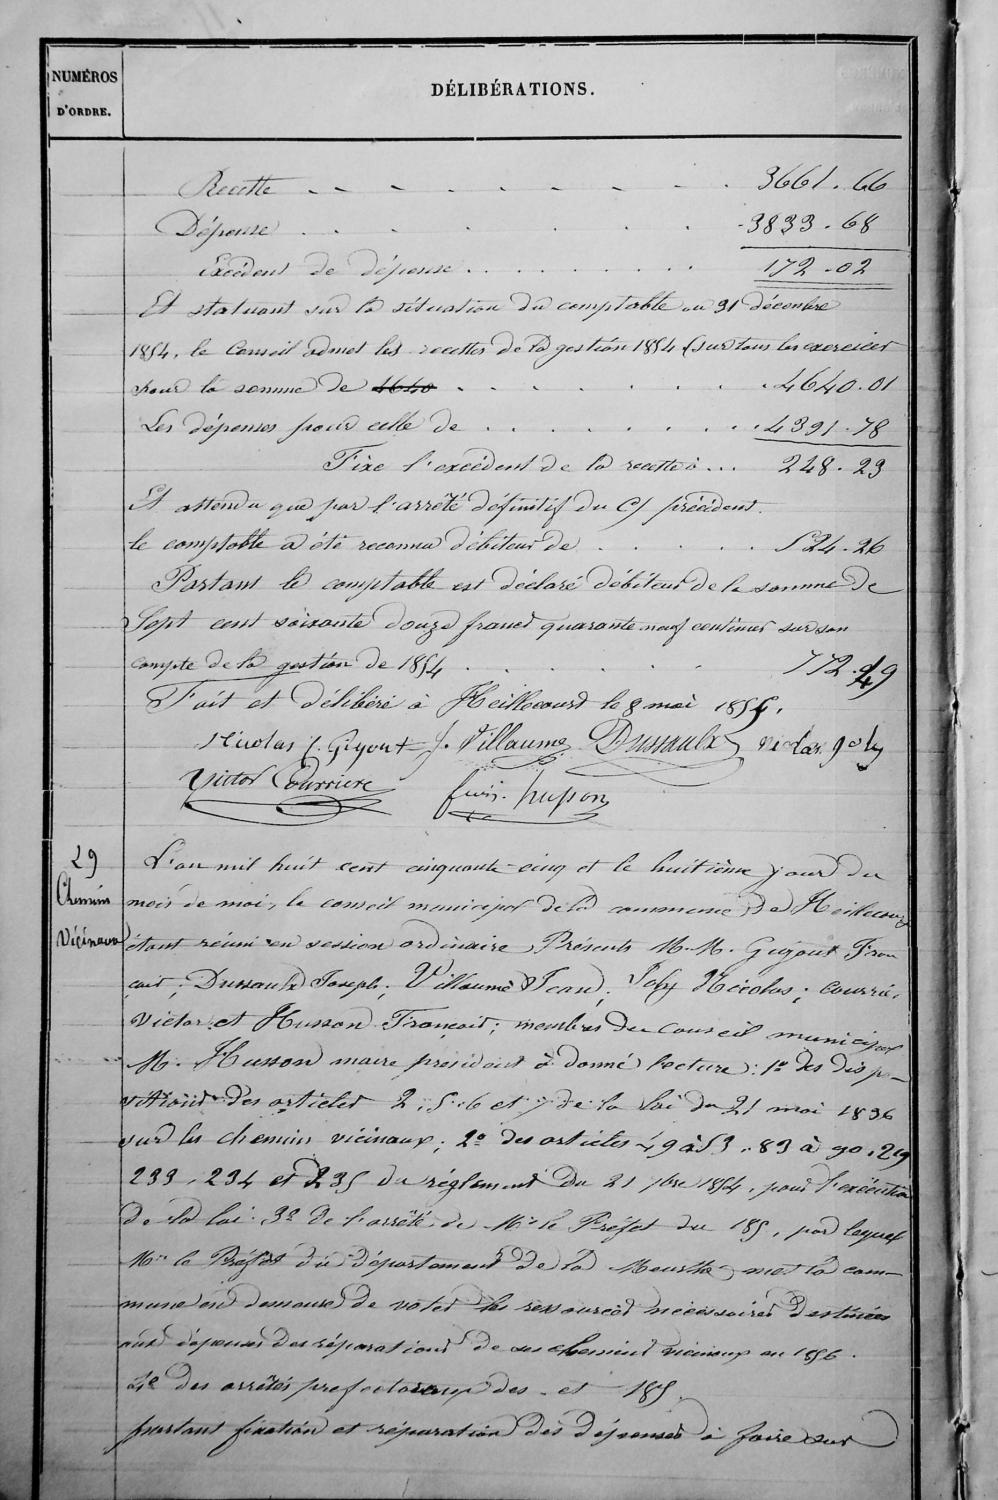 NUMÉROS
D'ORDRE.
DÉLIBÉRATIONS.
Recette 3661.66
Dépense 3833.68
Excédent de dépense 172.02
Et statuant sur la situation du comptable au 31 décembre
1854, le Conseil admet les recettes de la gestion 1854 (sur tous les exercices
pour la somme de 4640 4640.01
Les dépenses pour celle de 4391.78
Fixe l'excédent de la recette à ... 248.23
Et attendu que par l'arrêté définitif du précédent.
le comptable a été reconnu débiteur de 524.26
Partant le comptable est déclaré débiteur de la somme de
Sept cent soixante douze francs quarante neuf centimes sur son
compte de la gestion de 1854 772.49
Fait et délibéré à Heillecourt le 8 mai 1855.
Nicolas f. Guyout J. Villaume Dussaulx Nicolas Joly
Victor Courriere Husson
29
Chemins
Vicinaux
L'an mil huit cent cinquante-cinq et le huitième jour du
mois de mai, le conseil municipal de la commune de Heillecourt
étant réuni en session ordinaire, Présents M.M. Guyout Fran
çois; Dussaulx Joseph; Villaume Jean; Joly Nicolas; Courriè.
Victor et Husson François; membres du Conseil municipal
M. Husson maire président à donné lecture: 1º des dispo-
sitions des articles 2, 5, 6 et 7 de la loi du 21 mai 1836
sur les chemins vicinaux; 2º des articles 49 à 53, 83 à 90, 219
233, 234 et 235 du réglement du 21 7bre 1854, pour l'exécution
de la loi. 3º de l'arrêté de Mr le Préfet du 185 , par lequel
Mr le Préfet du département de la Meurthe met la com-
mune en demeure de voter les ressources nécessaires destinées
aux dépenses des réparations de ses chemins vicinaux en 1856.
4º des arrêtés prefectoraux des et 185 .
portant fixation et réparation des dépenses à faire sur